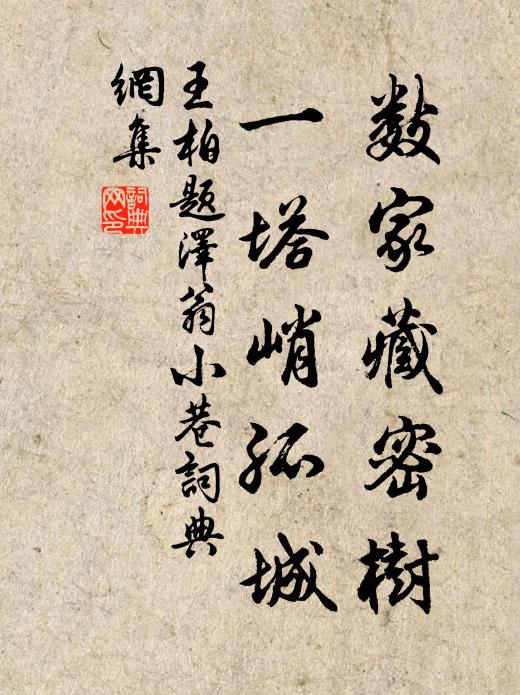 数家藏密樹
一塔峭孤城
王柏題澤翁小巷詞典
網集
詞典
网印